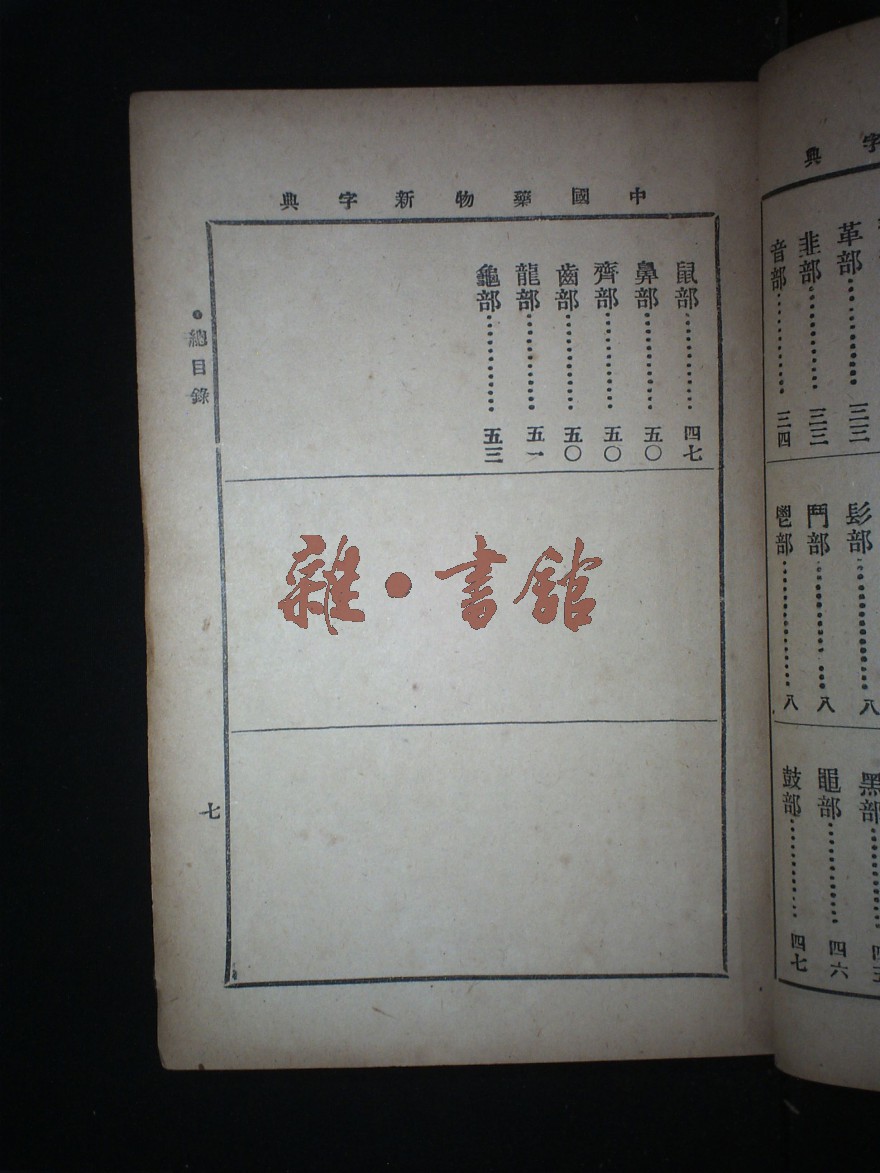 字典
革部…………三三
韭部…………三三
音部…………三四
髟部…………八
鬥部…………八
鬯部…………八
黑部…………
黽部…………四六
鼓部…………四七
中國藥物新字典
鼠部…………四七
鼻部…………五〇
齊部…………五〇
齒部…………五〇
龍部…………五一
龜部…………五三
雜•書館
•總目錄
七